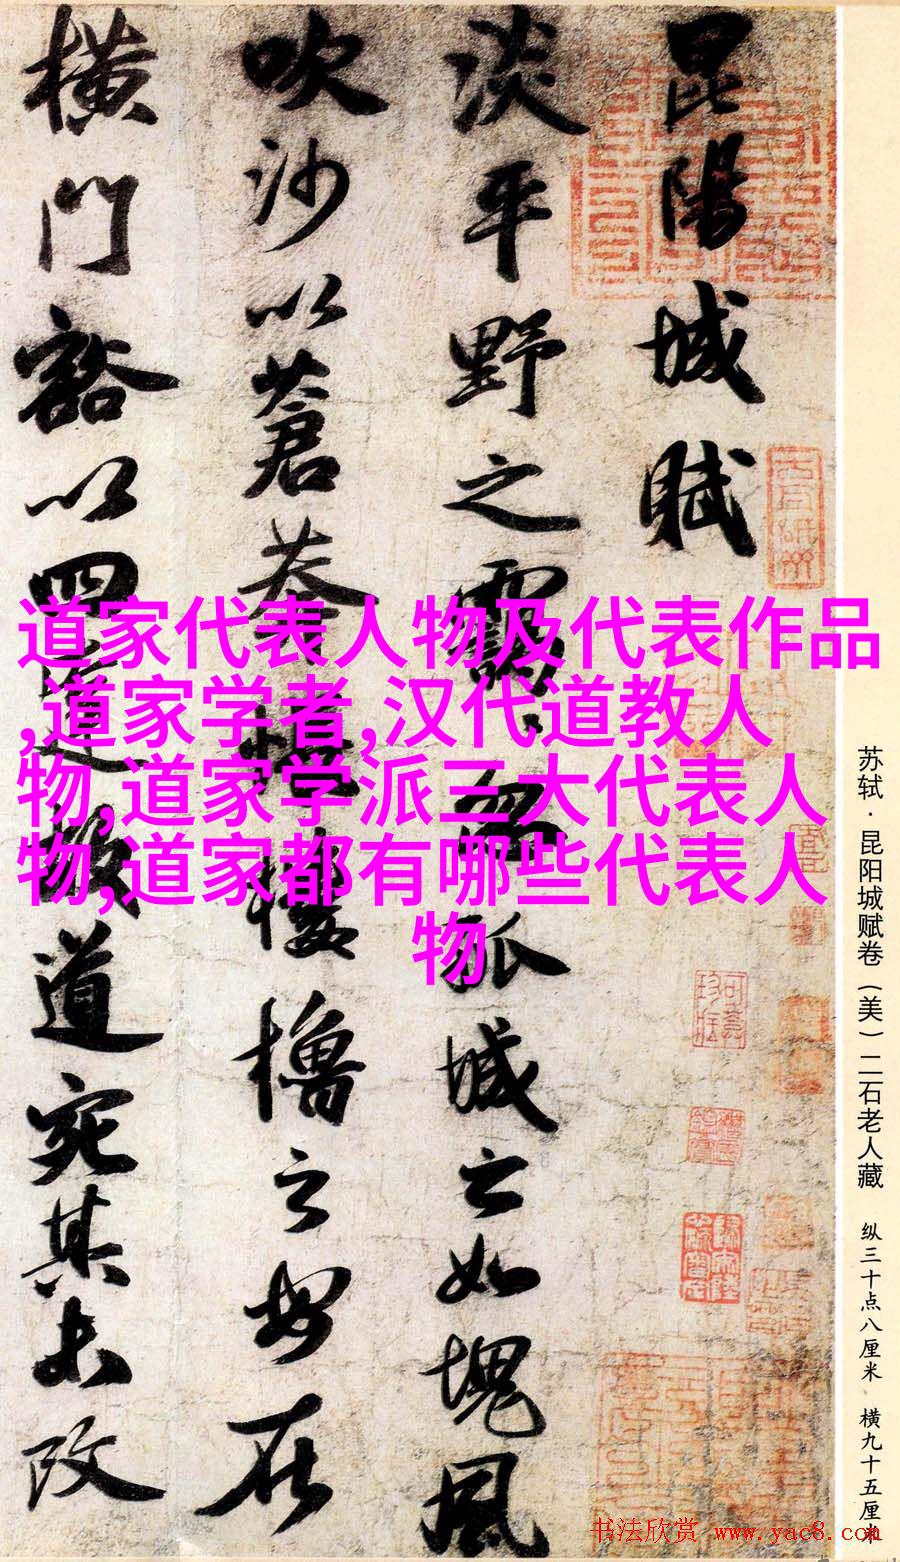 昆陽城賦
淡平野之靄、忽孤城之如塊風
吹沙以蒼莽悵樓櫓之安在
橫門豁以四達故道宛其未改
道家代表人物及代表作品
,道家学者,汉代道教人
物,道家学派三大代表人
物,道家都有哪些代表人
物
苏轼·昆阳城赋卷（美）二石老人藏 纵三十点八厘米 横九十五厘米
书法欣赏 www.yac8.com